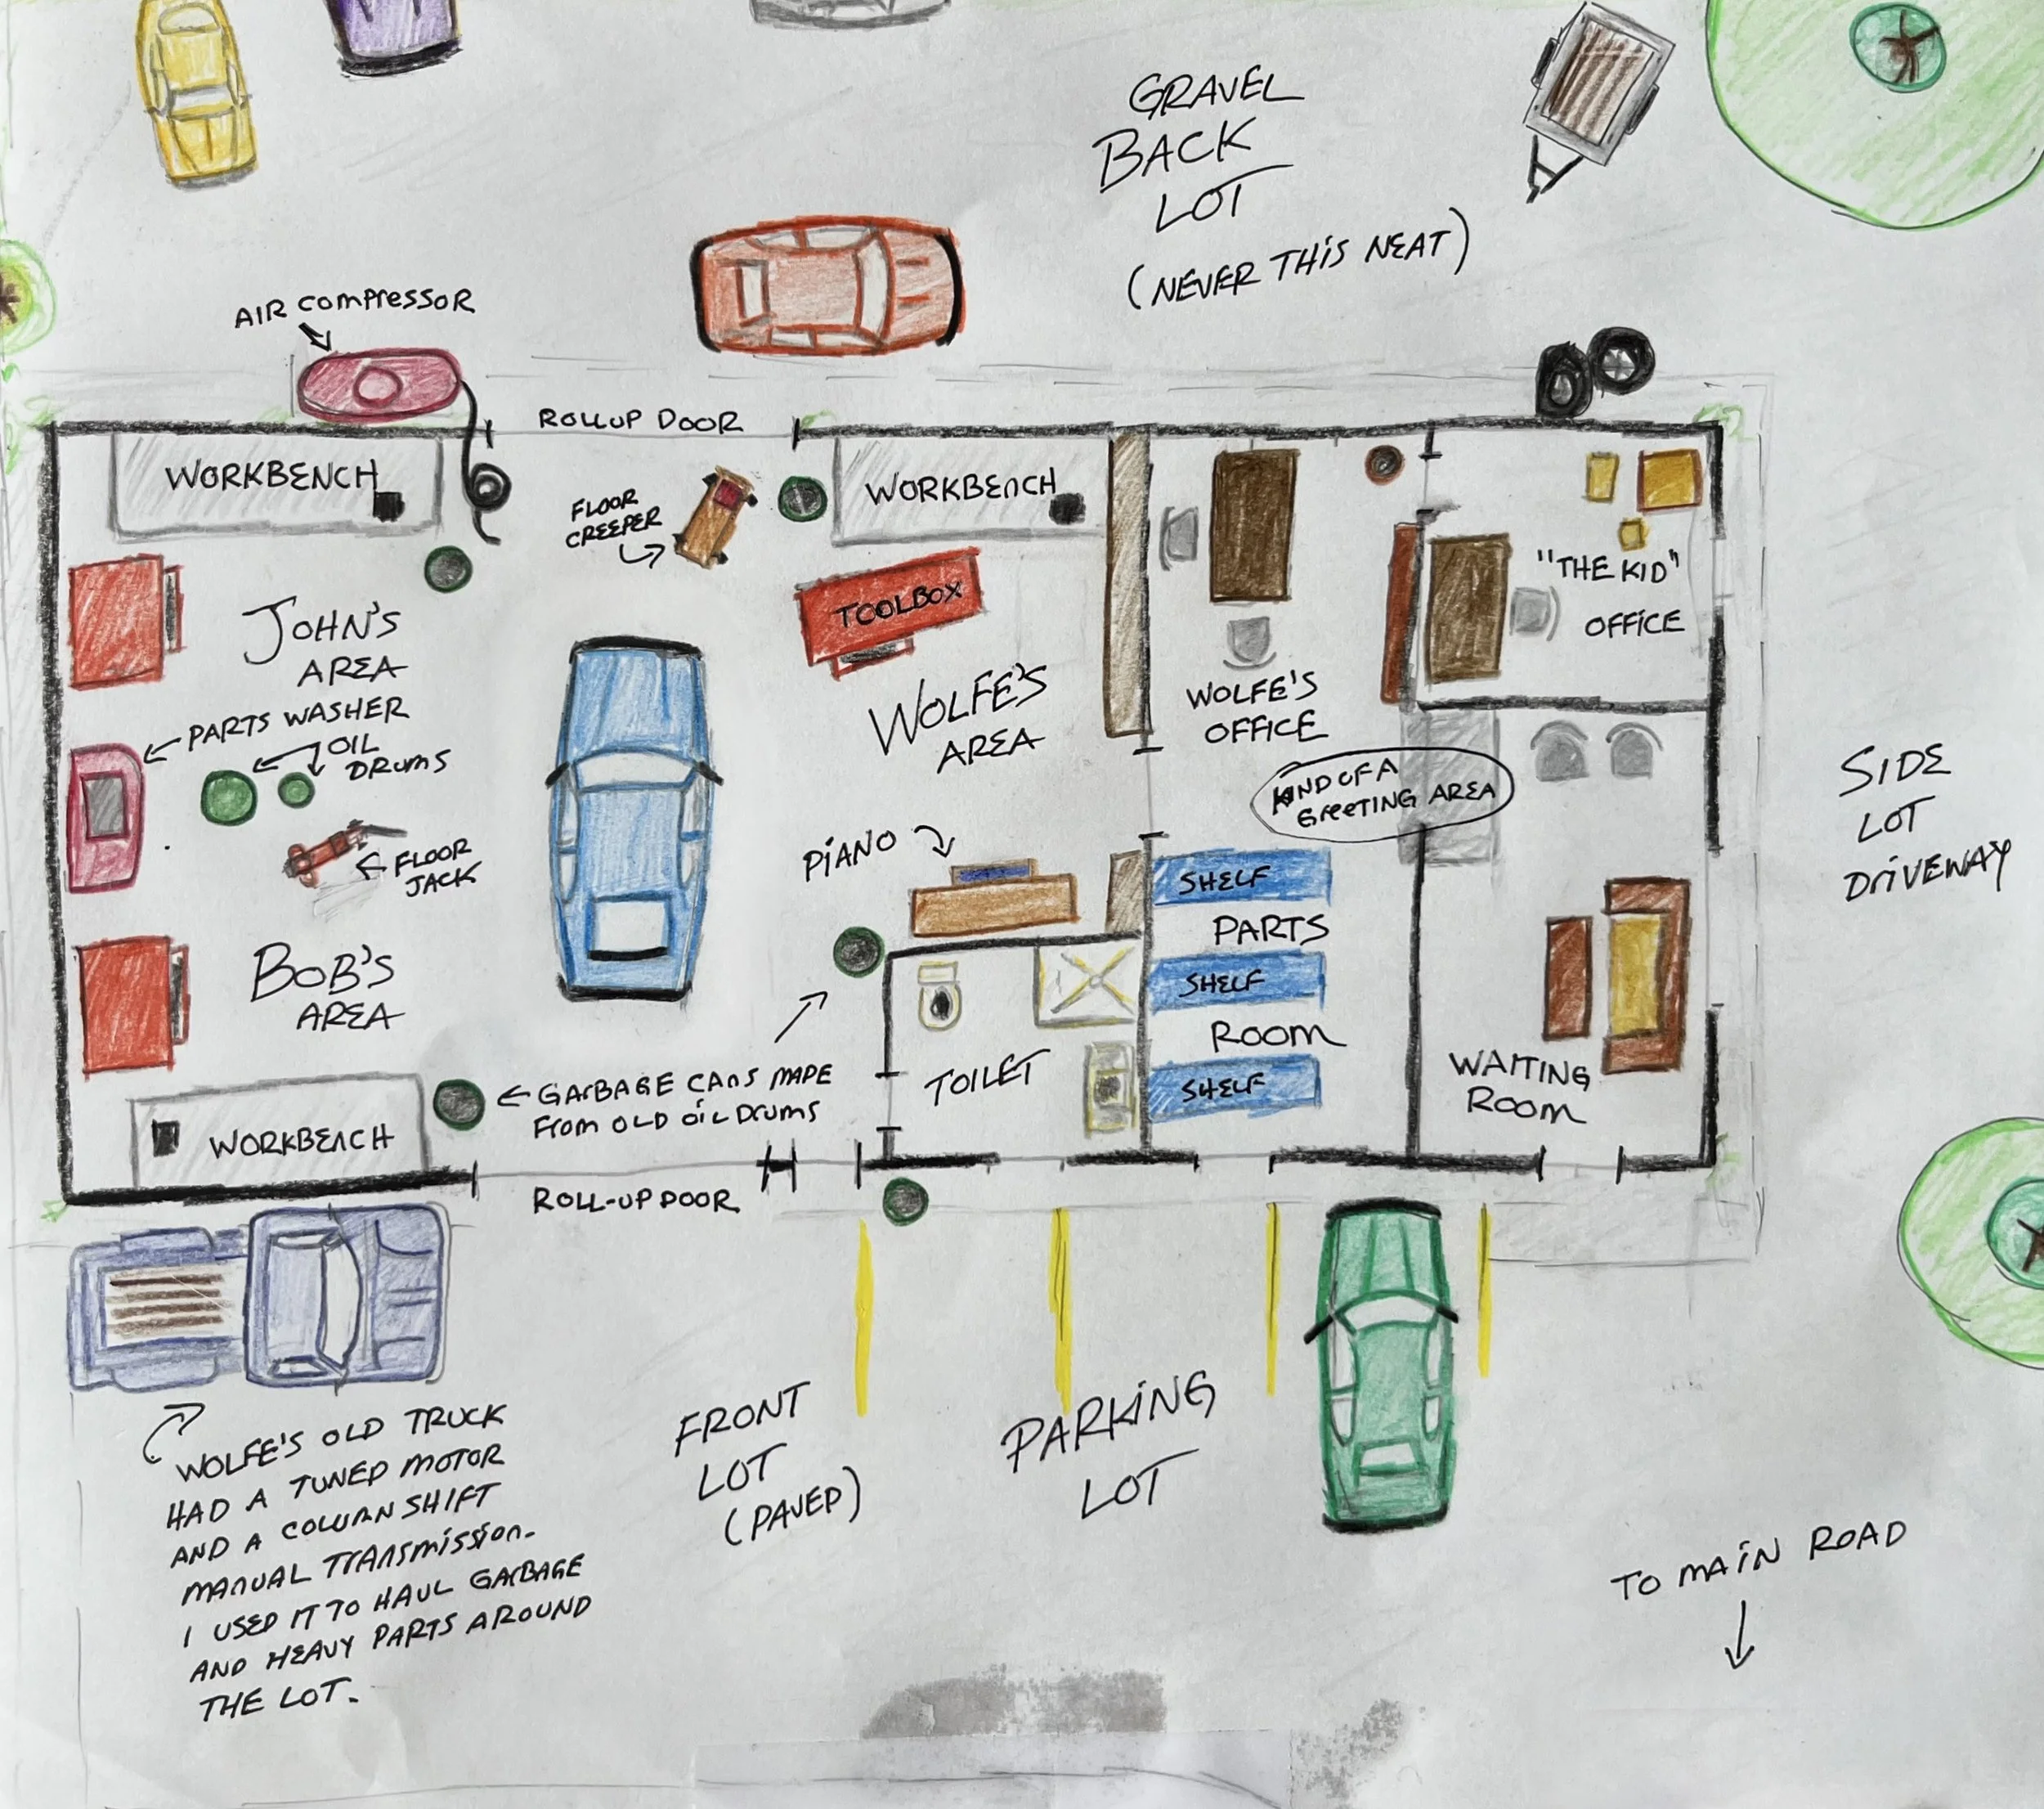 GRAVEL
BACK
LOT
(NEVER THIS NEAT)
AIR COMPRESSOR
ROLLUP DOOR
WORKBENCH
FLOOR
CREEPER
WORKBENCH
TOOLBOX
"THE KID"
OFFICE
JOHN'S
AREA
WOLFE'S
AREA
WOLFE'S
OFFICE
PARTS WASHER
OIL
DRUMS
KIND OF A
GREETING AREA
SIDE
LOT
DRIVEWAY
PIANO
FLOOR
JACK
SHELF
PARTS
SHELF
ROOM
SHELF
BOB'S
AREA
TOILET
WAITING
ROOM
GARBAGE CANS MADE
FROM OLD OIL DRUMS
WORKBENCH
ROLL-UP DOOR
WOLFE'S OLD TRUCK
HAD A TUNED MOTOR
AND A COLUMN SHIFT
MANUAL TRANSMISSION.
I USED IT TO HAUL GARBAGE
AND HEAVY PARTS AROUND
THE LOT.
FRONT
LOT
(PAVED)
PARKING
LOT
TO MAIN ROAD